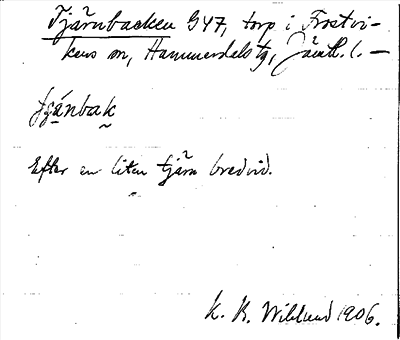 Tjärnbacken G47, torp i Frostvi-
kens sn, Hammerdals tg, Jämtl. l. —
tjánbak
Efter en liten tjärn bredvid.
K. B. Wiklund 1906.